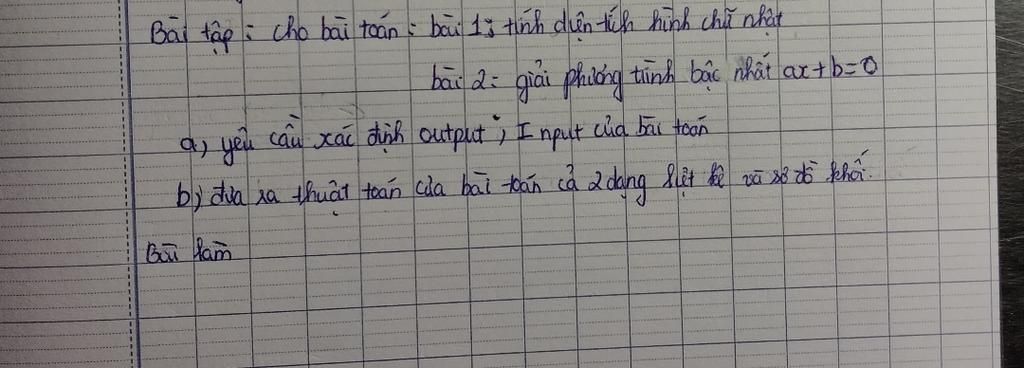 Bài tập: cho bài toán: bài 1: tính diện tích hình chữ nhật
bài 2: giải phương trình bậc nhất ax+b=0
a, yêu cầu xác định output, Input của bài toán
b, đưa ra thuật toán của bài toán cả 2 dạng liệt kê và sơ đồ khối.
Bài làm